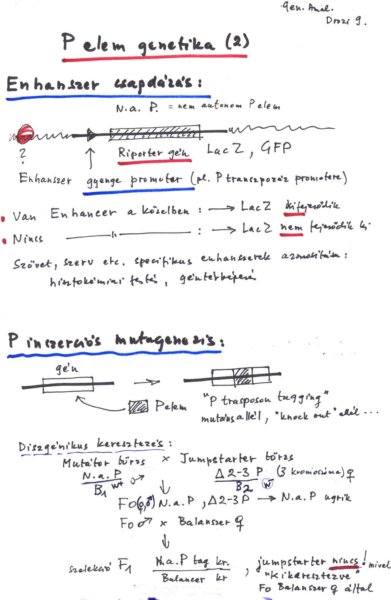 Gen. Anal.
Droso 9.
P elem genetika (2)
Enhanszer csapdázás:
N.a. P. = nem autonom P elem
?
Riporter gén LacZ, GFP
Enhanszer gyenge promoter (pl. P transzpozáz promotere)
• Van Enhancer a közelben : → LacZ kifejeződik
• Nincs —"— : → LacZ nem fejeződik ki
Szövet, szerv etc. specifikus enhanszerek azonosítása:
hisztokémiai festés, géntérképezés
P inszerciós mutagenezis:
gén
P elem
"P trasposon tagging"
mutáns allél, "knock out" allél ...
Diszgénikus keresztezés:
Mutátor törzs × Jumpstarter törzs
N.a.P / B1 w- ♂ Δ2-3 P / B2 w- (3 kromoszóma) ♀
F0 (♀,♂) N.a.P, Δ2-3P → N.a.P ugrik
F0 ♂ × Balanszer ♀
szelekció F1 N.a.P tag kr. / Balancer kr, jumpstarter nincs! mivel
"kikeresztezve"
F0 Balanszer ♀ által